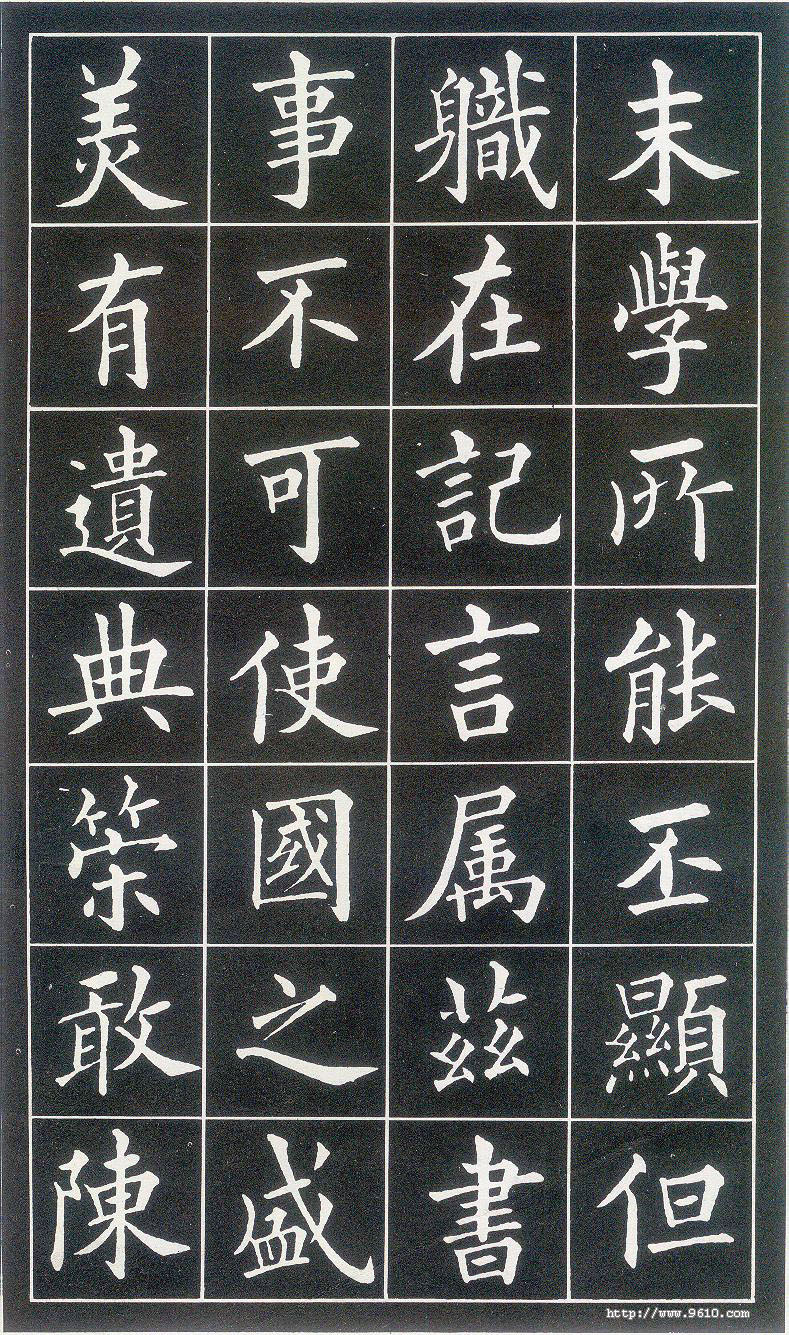 末學所能丕顯但
軄在記言属茲書
事不可使國之盛
美有遺典策敢陳
http://www.9610.com